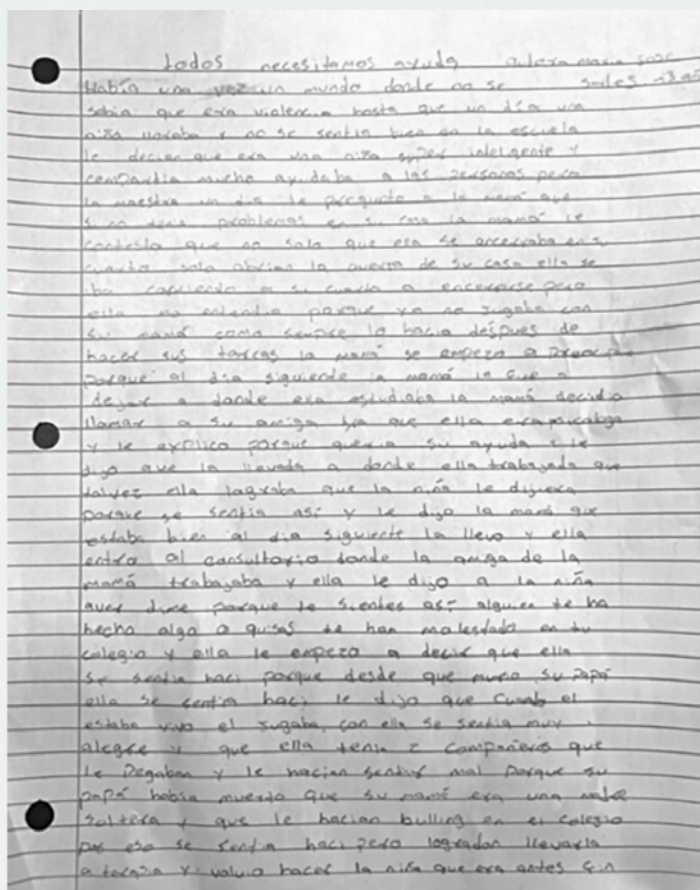 todos necesitamos ayuda autora maria jose
Había una vez un mundo donde no se
sabia que era violencia hasta que un día una
niña lloraba y no se sentia bien en la escuela
le decian que era una niña super inteligente y
compartia mucho ayudaba a las personas pero
la maestra un dia le pregunto a la mamá que
si no tenia problemas en su casa la mamá le
contesto que no solo que esa se encerraba en su
cuarto solo abrian la puerta de su casa ella se
iba corriendo a su cuarto a encerrarse pero
ella no entendia porque ya no jugaba con
su mamá como siempre lo hacia después de
hacer sus tareas la mamá se empezo a
porque al dia siguiente la mamá la fue a
dejar a donde ella estudiaba la mamá decidio
llamar a su amiga que ella era
y le explico porque queria su ayuda y le
dijo que la llevada a donde ella trabajada que
talvez ella lograba que la niña le dijera
porque se sentia así y le dijo la mamá que
estaba bien al dia siguiente la llevo y ella
entro al consultorio donde la amiga de la
mamá trabajaba y ella le dijo a la niña
aver dime porque te sientes así alguien te ha
hecho algo o quisas te han molestado en tu
colegio y ella le empezo a decir que ella
se sentia haci porque desde que murio su papá
ella se sentia haci le dijo que cuando el
estaba vivo el jugaba con ella se sentia muy
alegre y que ella tenia 2 compañeros que
le pegaban y le hacian sentir mal porque su
papá habia muerto que su mamá era una madre
soltera y que le hacian bulling en el colegio
por eso se sentia haci pero logradon llevarla
a terapia y volvio hacer la niña que era antes fin